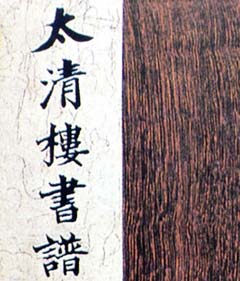 太清樓書譜